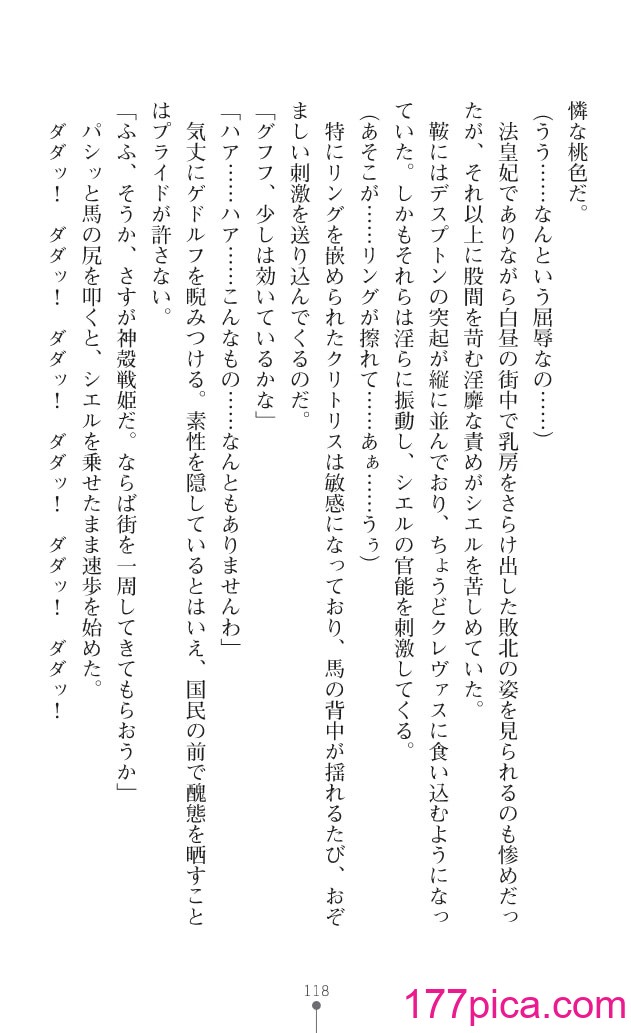 憐な桃色だ。
(うう……なんという屈辱なの……)
法皇妃でありながら白昼の街中で乳房をさらけ出した敗北の姿を見られるのも惨めだっ
たが、それ以上に股間を苛む淫靡な責めがシエルを苦しめていた。
鞍にはデスプトンの突起が縦に並んでおり、ちょうどクレヴァスに食い込むようになっ
ていた。しかもそれらは淫らに振動し、シエルの官能を刺激してくる。
(あそこが……リングが擦れて……あぁ……うぅ)
特にリングを嵌められたクリトリスは敏感になっており、馬の背中が揺れるたび、おぞ
ましい刺激を送り込んでくるのだ。
「グフフ、少しは効いているかな」
「ハア……ハア……こんなもの……なんともありませんわ」
気丈にゲドルフを睨みつける。素性を隠しているとはいえ、国民の前で醜態を晒すこと
はプライドが許さない。
「ふふ、そうか、さすが神殻戦姫だ。ならば街を一周してきてもらおうか」
パシッと馬の尻を叩くと、シエルを乗せたまま速歩を始めた。
ダダッ！　ダダッ！　ダダッ！　ダダッ！　ダダッ！　ダダッ！
118
177pica.com